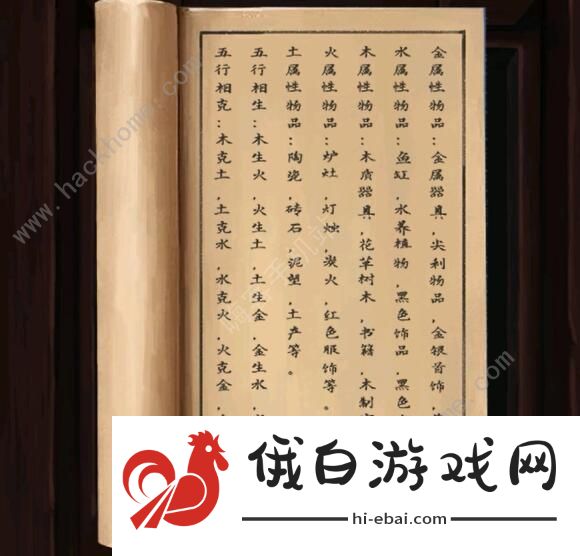 金属性物品:金属器具,尖利物品,金银首饰,
水属性物品:鱼缸,水养植物,黑色饰品,黑色
木属性物品:木质器具,花草树木,书籍,木制
火属性物品:炉灶,灯烛,炭火,红色服饰等。
土属性物品:陶瓷,砖石,泥塑,土产等。
五行相生:木生火,火生土,土生金,金生水,
五行相克:木克土,土克水,水克火,火克金,
www.hackhome.com
嗨客手机站
www.hackhome.com
俄白游戏网
hi-ebai.com